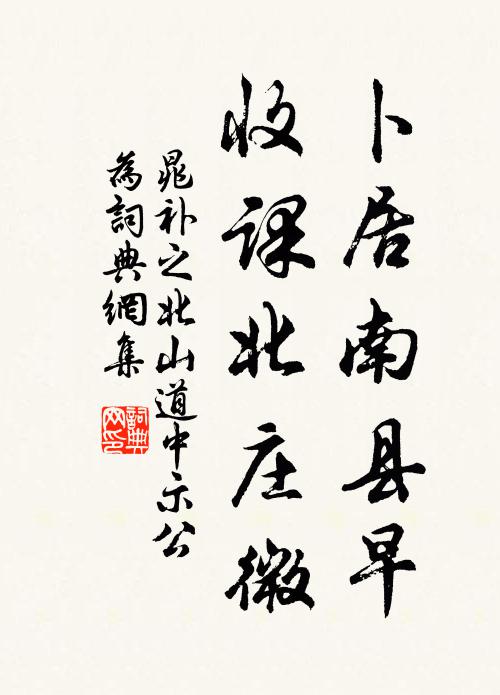 卜居南县早
收课北庄微
晁补之北山道中示公
為詞典網集
詞典网印